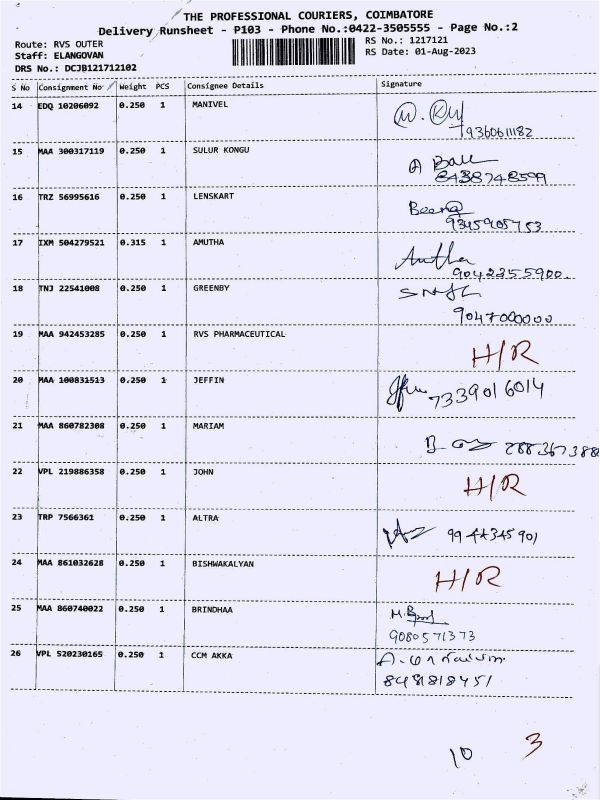 THE PROFESSIONAL COURIERS, COIMBATORE
Delivery Runsheet - P103 - Phone No.:0422-3505555 - Page No.:2
Route: RVS OUTER
RS No.: 1217121
Staff: ELANGOVAN
RS Date: 01-Aug-2023
DRS No.: DCJB121712102
S No Consignment No Weight PCS Consignee Details Signature
14 EDQ 10206092 0.250 1 MANIVEL
9360611182
15 MAA 300317119 0.250 1 SULUR KONGU
8438748599
16 TRZ 56995616 0.250 1 LENSKART
9345905753
17 IXM 504279521 0.315 1 AMUTHA Amutha
9042255900
18 TNJ 22541008 0.250 1 GREENBY
9047000000
19 MAA 942453285 0.250 1 RVS PHARMACEUTICAL H/R
20 MAA 100831513 0.250 1 JEFFIN 7339016014
21 MAA 860782308 0.250 1 MARIAM
22 VPL 219886358 0.250 1 JOHN H/R
23 TRP 7566361 0.250 1 ALTRA 9944345901
24 MAA 861032628 0.250 1 BISHWAKALYAN H/R
25 MAA 860740022 0.250 1 BRINDHAA
9080571373
26 VPL 520230165 0.250 1 CCM AKKA
8481818451
10 3